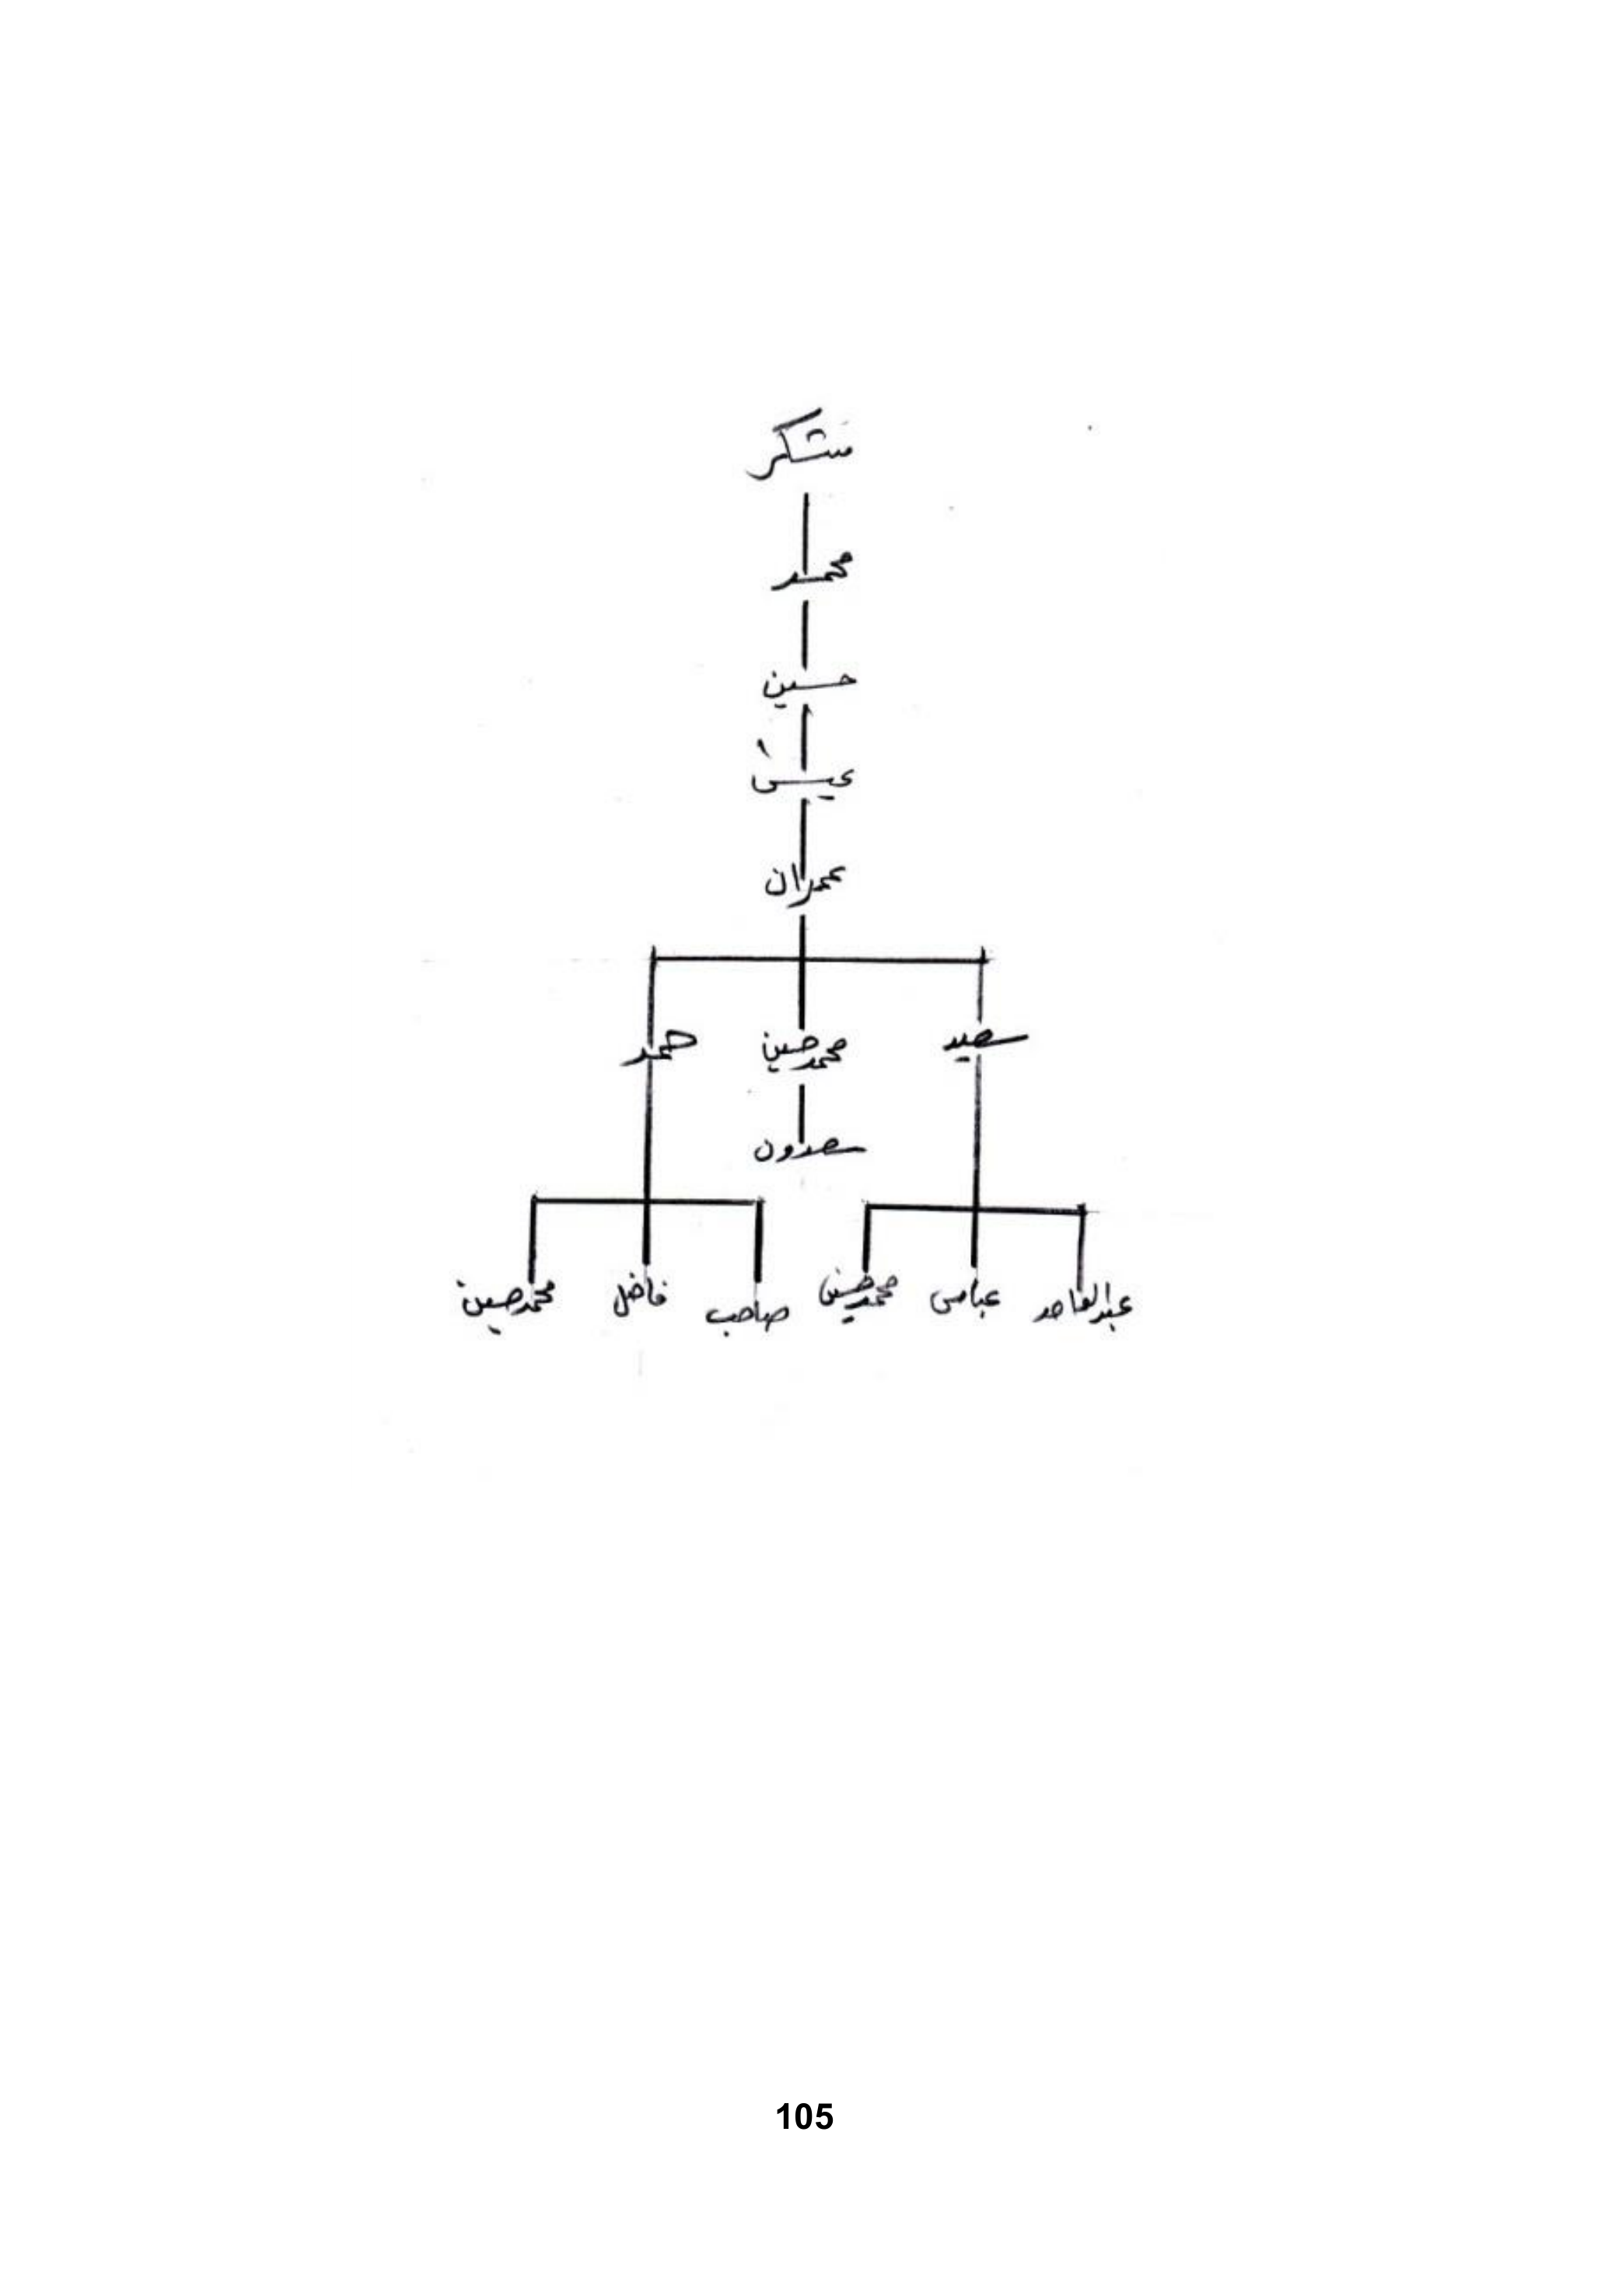 شكر
محمد
حسين
عيسىٰ
عمران
سعيد محمد حسين حمد
سعدون
عبدالواحد عباس محمد حسين صاحب فاضل محمد حسين
105